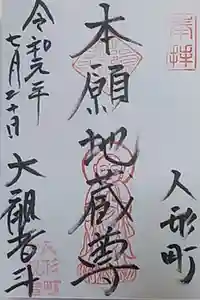 奉拝
人形町
本願地蔵尊
令和元年
七月二十日
大観音寺
人形町